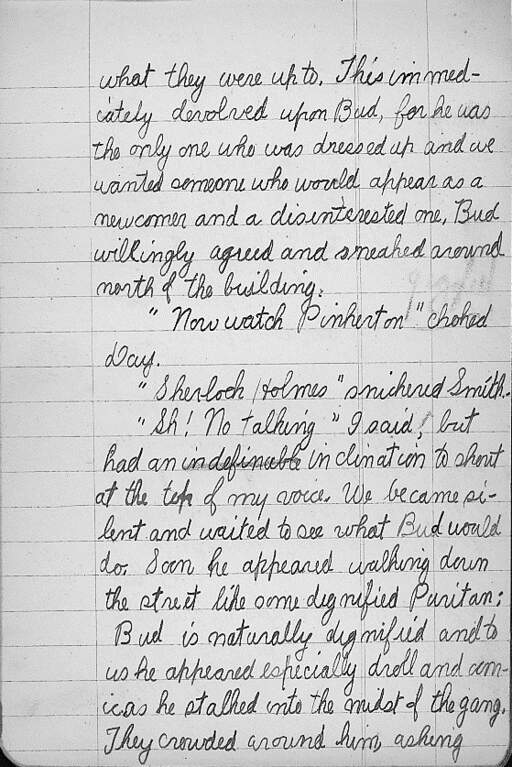 what they were up to. This immed-
iately devolved upon Bud, for he was
the only one who was dressed up and we
wanted someone who would appear as a
newcomer and a disinterested one. Bud
willingly agreed and sneaked around
north of the building.
" Now watch Pinkerton " choked
Day.
" Sherloch Holmes " snickered Smith.
" Sh! No talking " I said, but
had an indefinable inclination to shout
at the top of my voice. We became si-
lent and waited to see what Bud would
do. Soon he appeared walking down
the street like some dignified Puritan;
Bud is naturally dignified and to
us he appeared especially droll and com-
ic as he stalked into the midst of the gang.
They crowded around him, asking